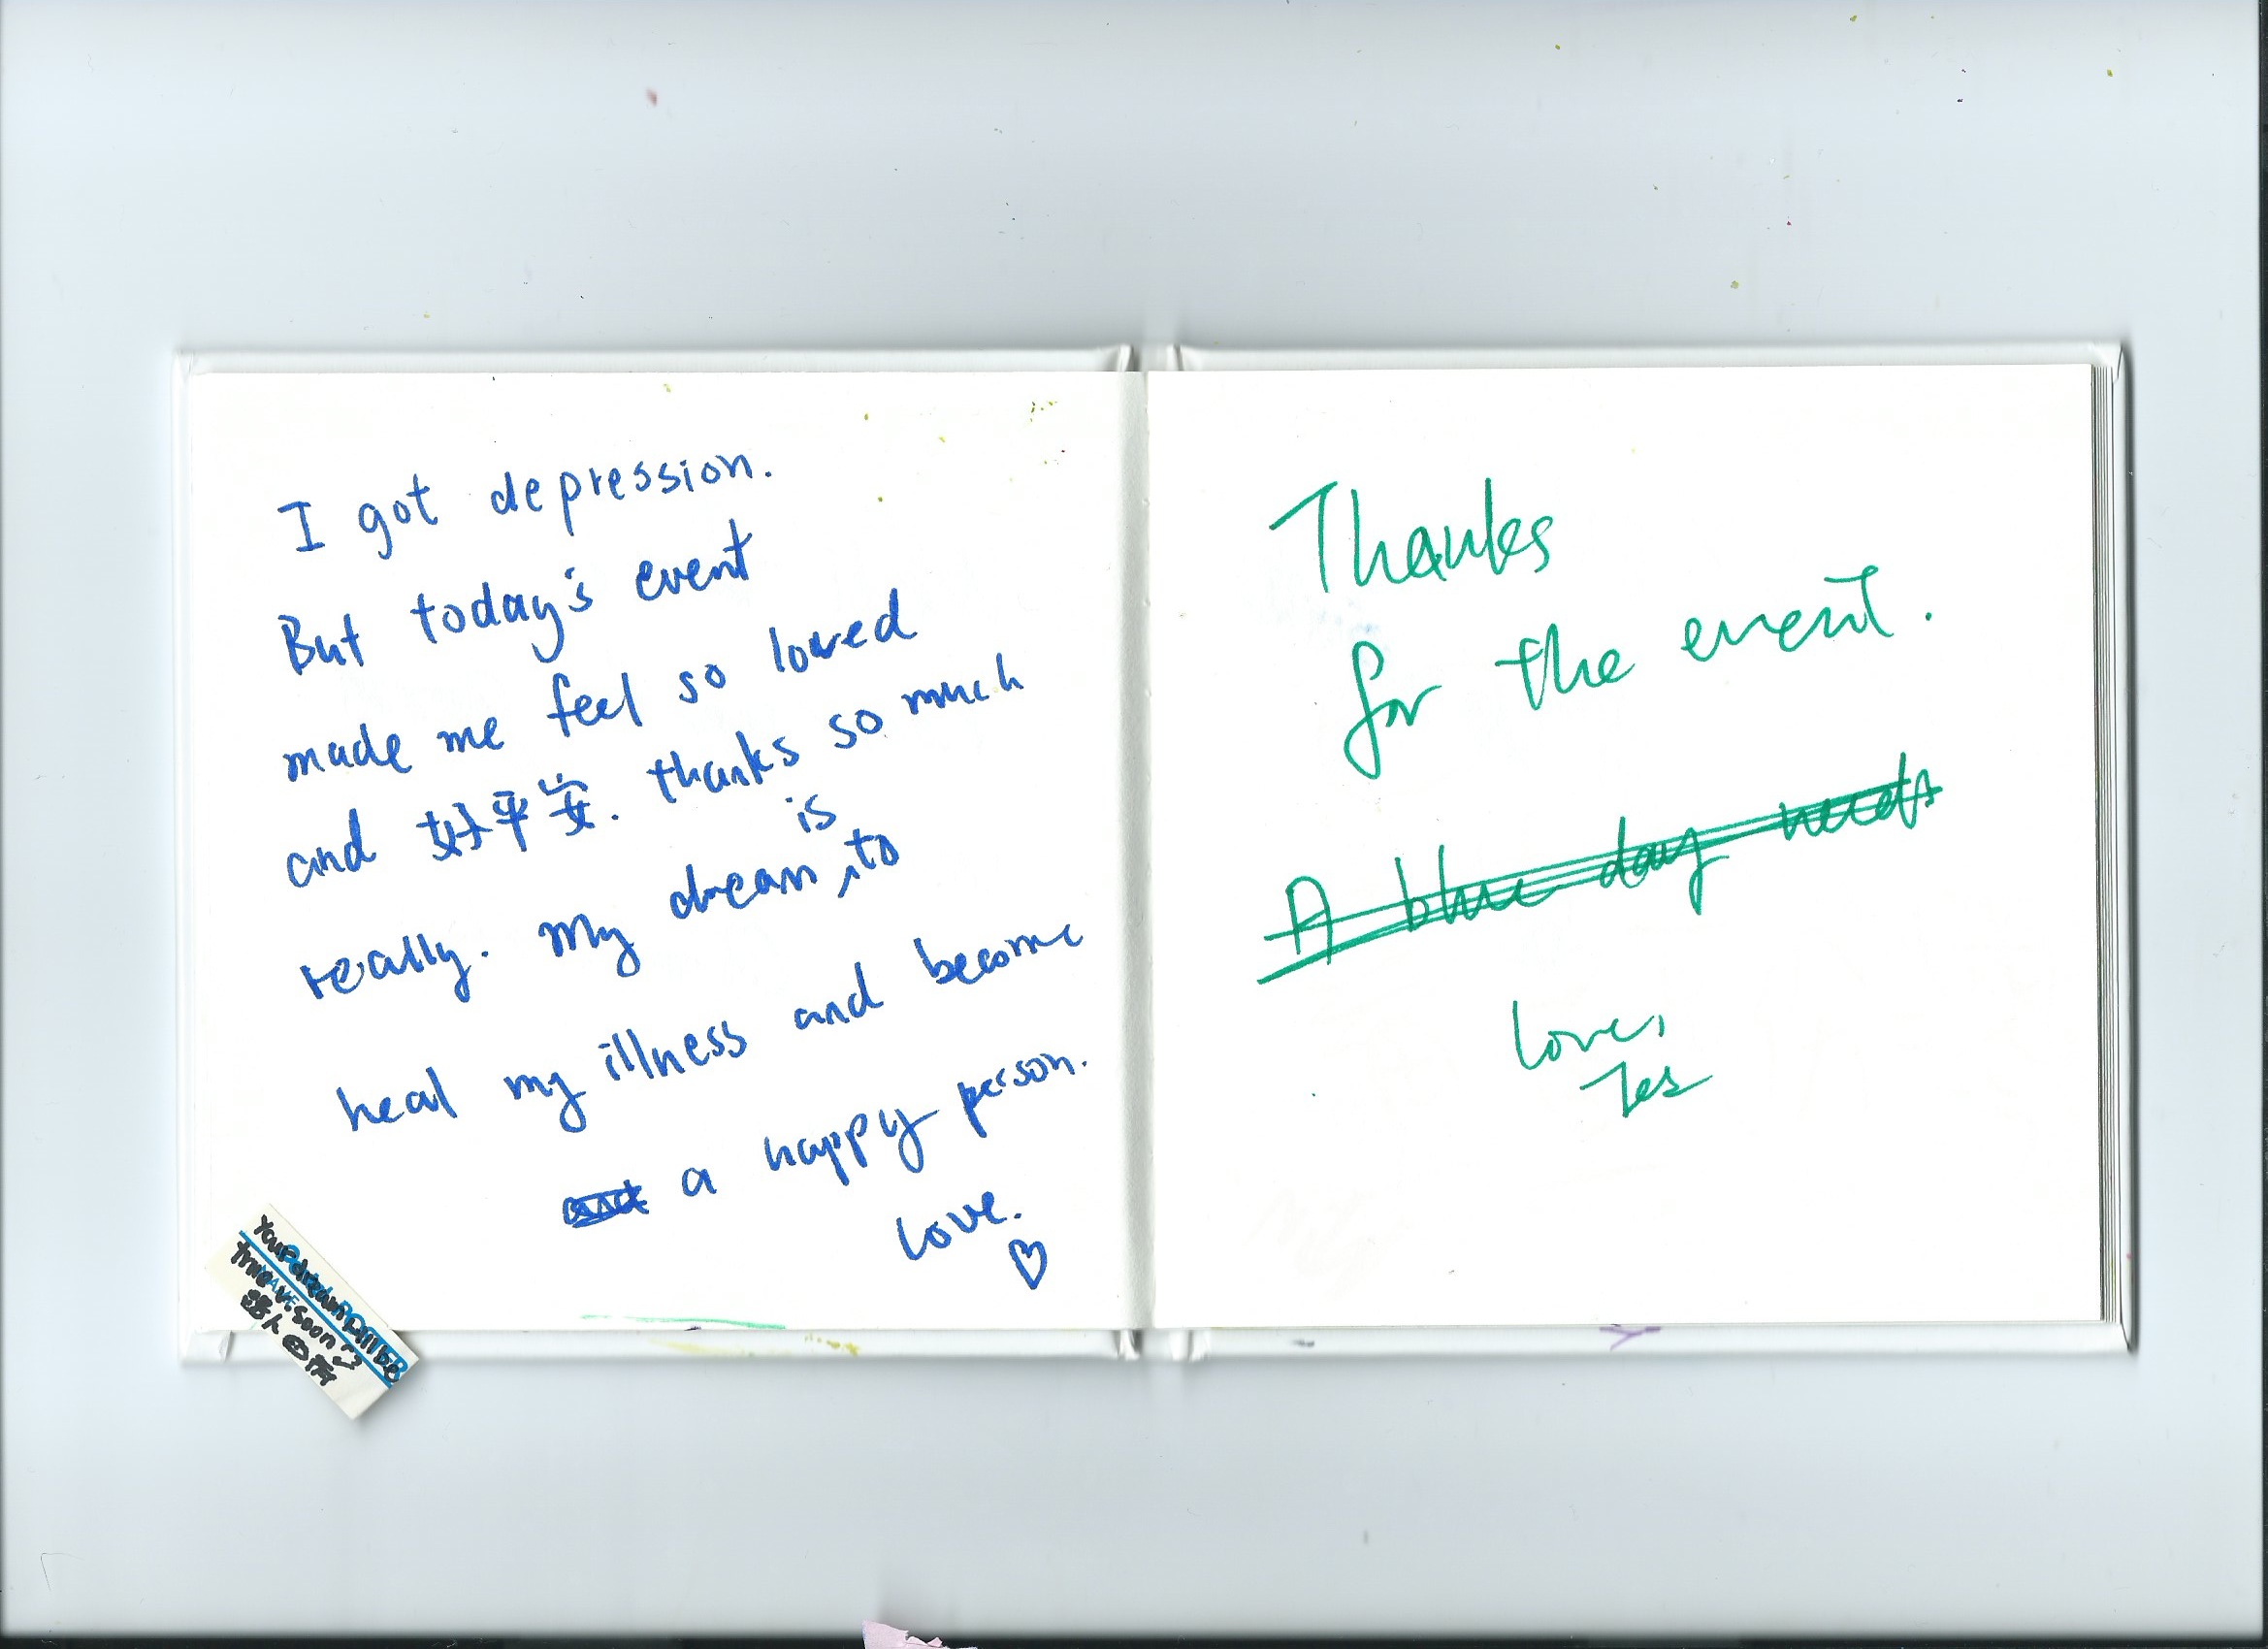 I got depression.
But today's event
made me feel so loved
and 好平安. thanks so much
really. My dream is to
heal my illness and become
a happy person.
Love.
Your dream will be
true v. soon
路人
Thanks
for the event.
A blue day
Love,
Jes